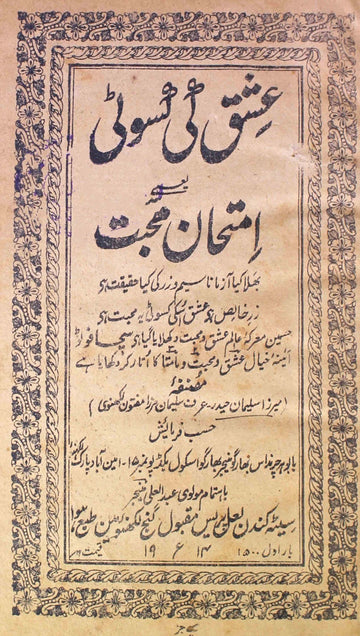 عشق کی کسوٹی
یعنے
امتحان محبت
بھلا کیا آزمانا سیم و زر کی کیا حقیقت ہے
زر خالص ہے عشق اسکی کسوٹی یہ محبت ہے
حسین معرکہ عالم عشق و محبت دکھلایا گیا ہے سچا فوٹو
آئینۂ خیال عشق و محبت و مامتا کا اتار کر دکھایا ہے
مصنفہٗ
(میرزا سلیمان حیدر عرف سلیمان مرزا مفتون لکھنوی)
حسب فرمائش
بابو ہر چرنداس بھارگو منیجر بھارگو اسکول بکڈپو نمبر ۱۵ امین آباد پارک لکھنؤ
باہتمام مولوی عبدالعلی منیجر
سیٹھ کندن لعل پریس مقبول گنج لکھنؤ مین طبع ہوا
بار اول ۱۵۰۰ ۱۹۱۴ء قیمت